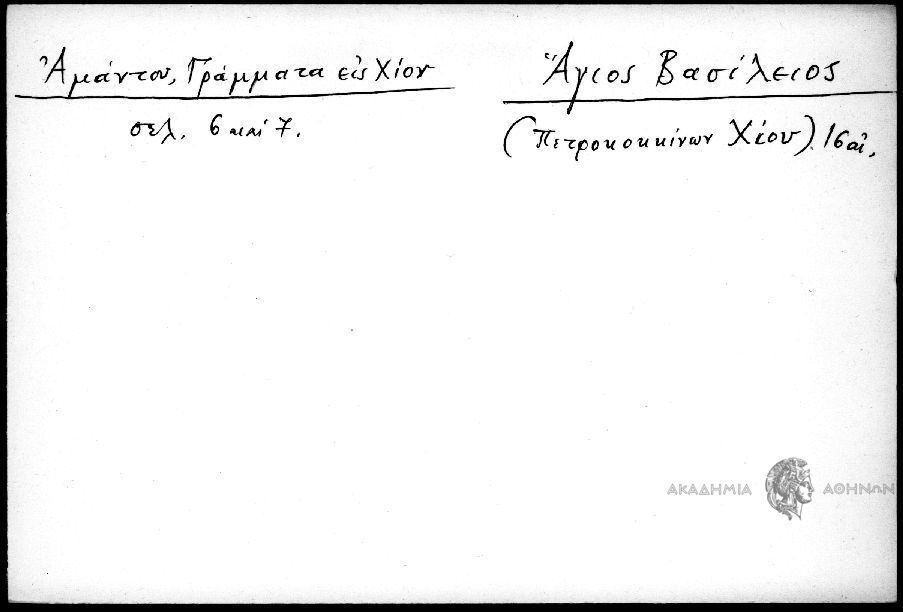 Ἀμάντου, Γράμματα εἰς Χίον
σελ. 6 και 7.
Ἅγιος Βασίλειος
(Πετροκοκκίνων Χίου) 16 αἰ.
ΑΚΑΔΗΜΙΑ ΑΘΗΝΩΝ